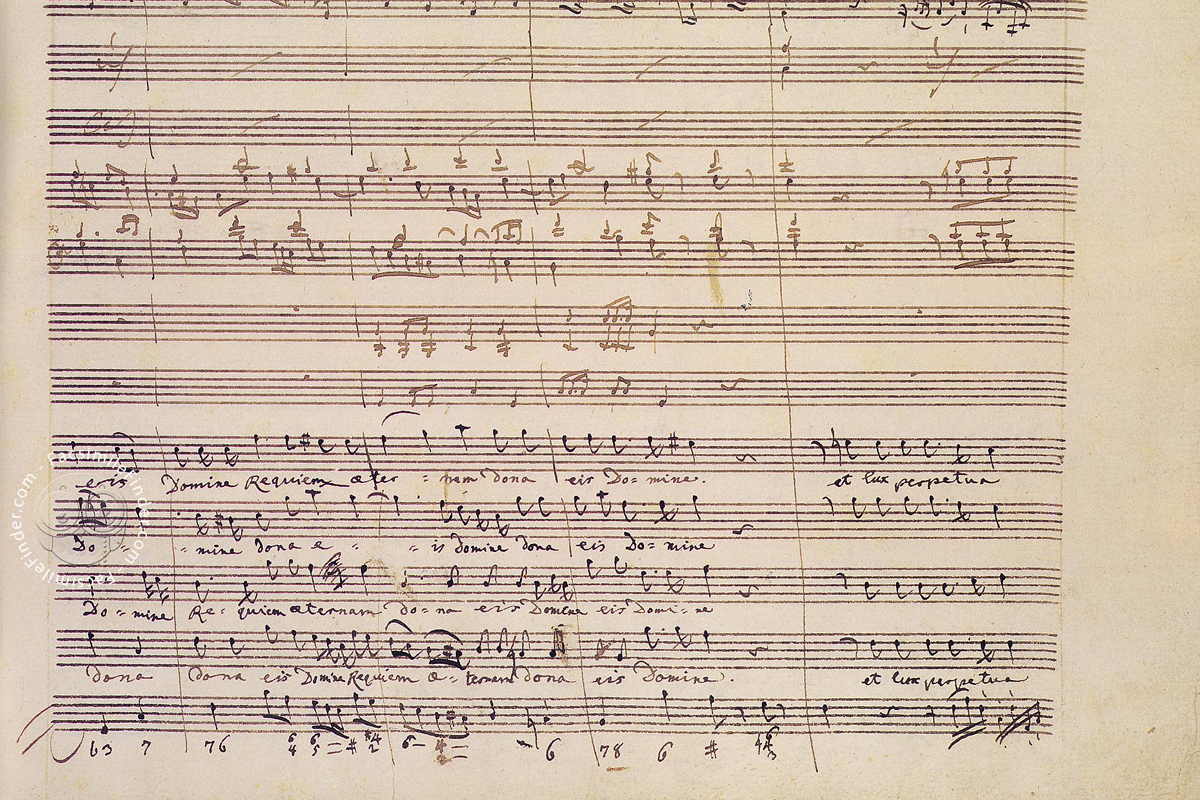 eris Domine Requiem æter = nam dona eis Do= mine. et lux perpetua
Do - = mine dona e - = is Domine dona eis Do= mine
Do -= mine Re= quiem æternam Do= na eis Domine eis Domi= ne
dona dona eis Domine Requiem æ -= ternam dona eis Domine. et lux perpetua
b3 7 76 6 4 6 5 = # #4 2 6- 4 = 6 78 6 #
FacsimileFinder.com - FacsimileFinder.com -